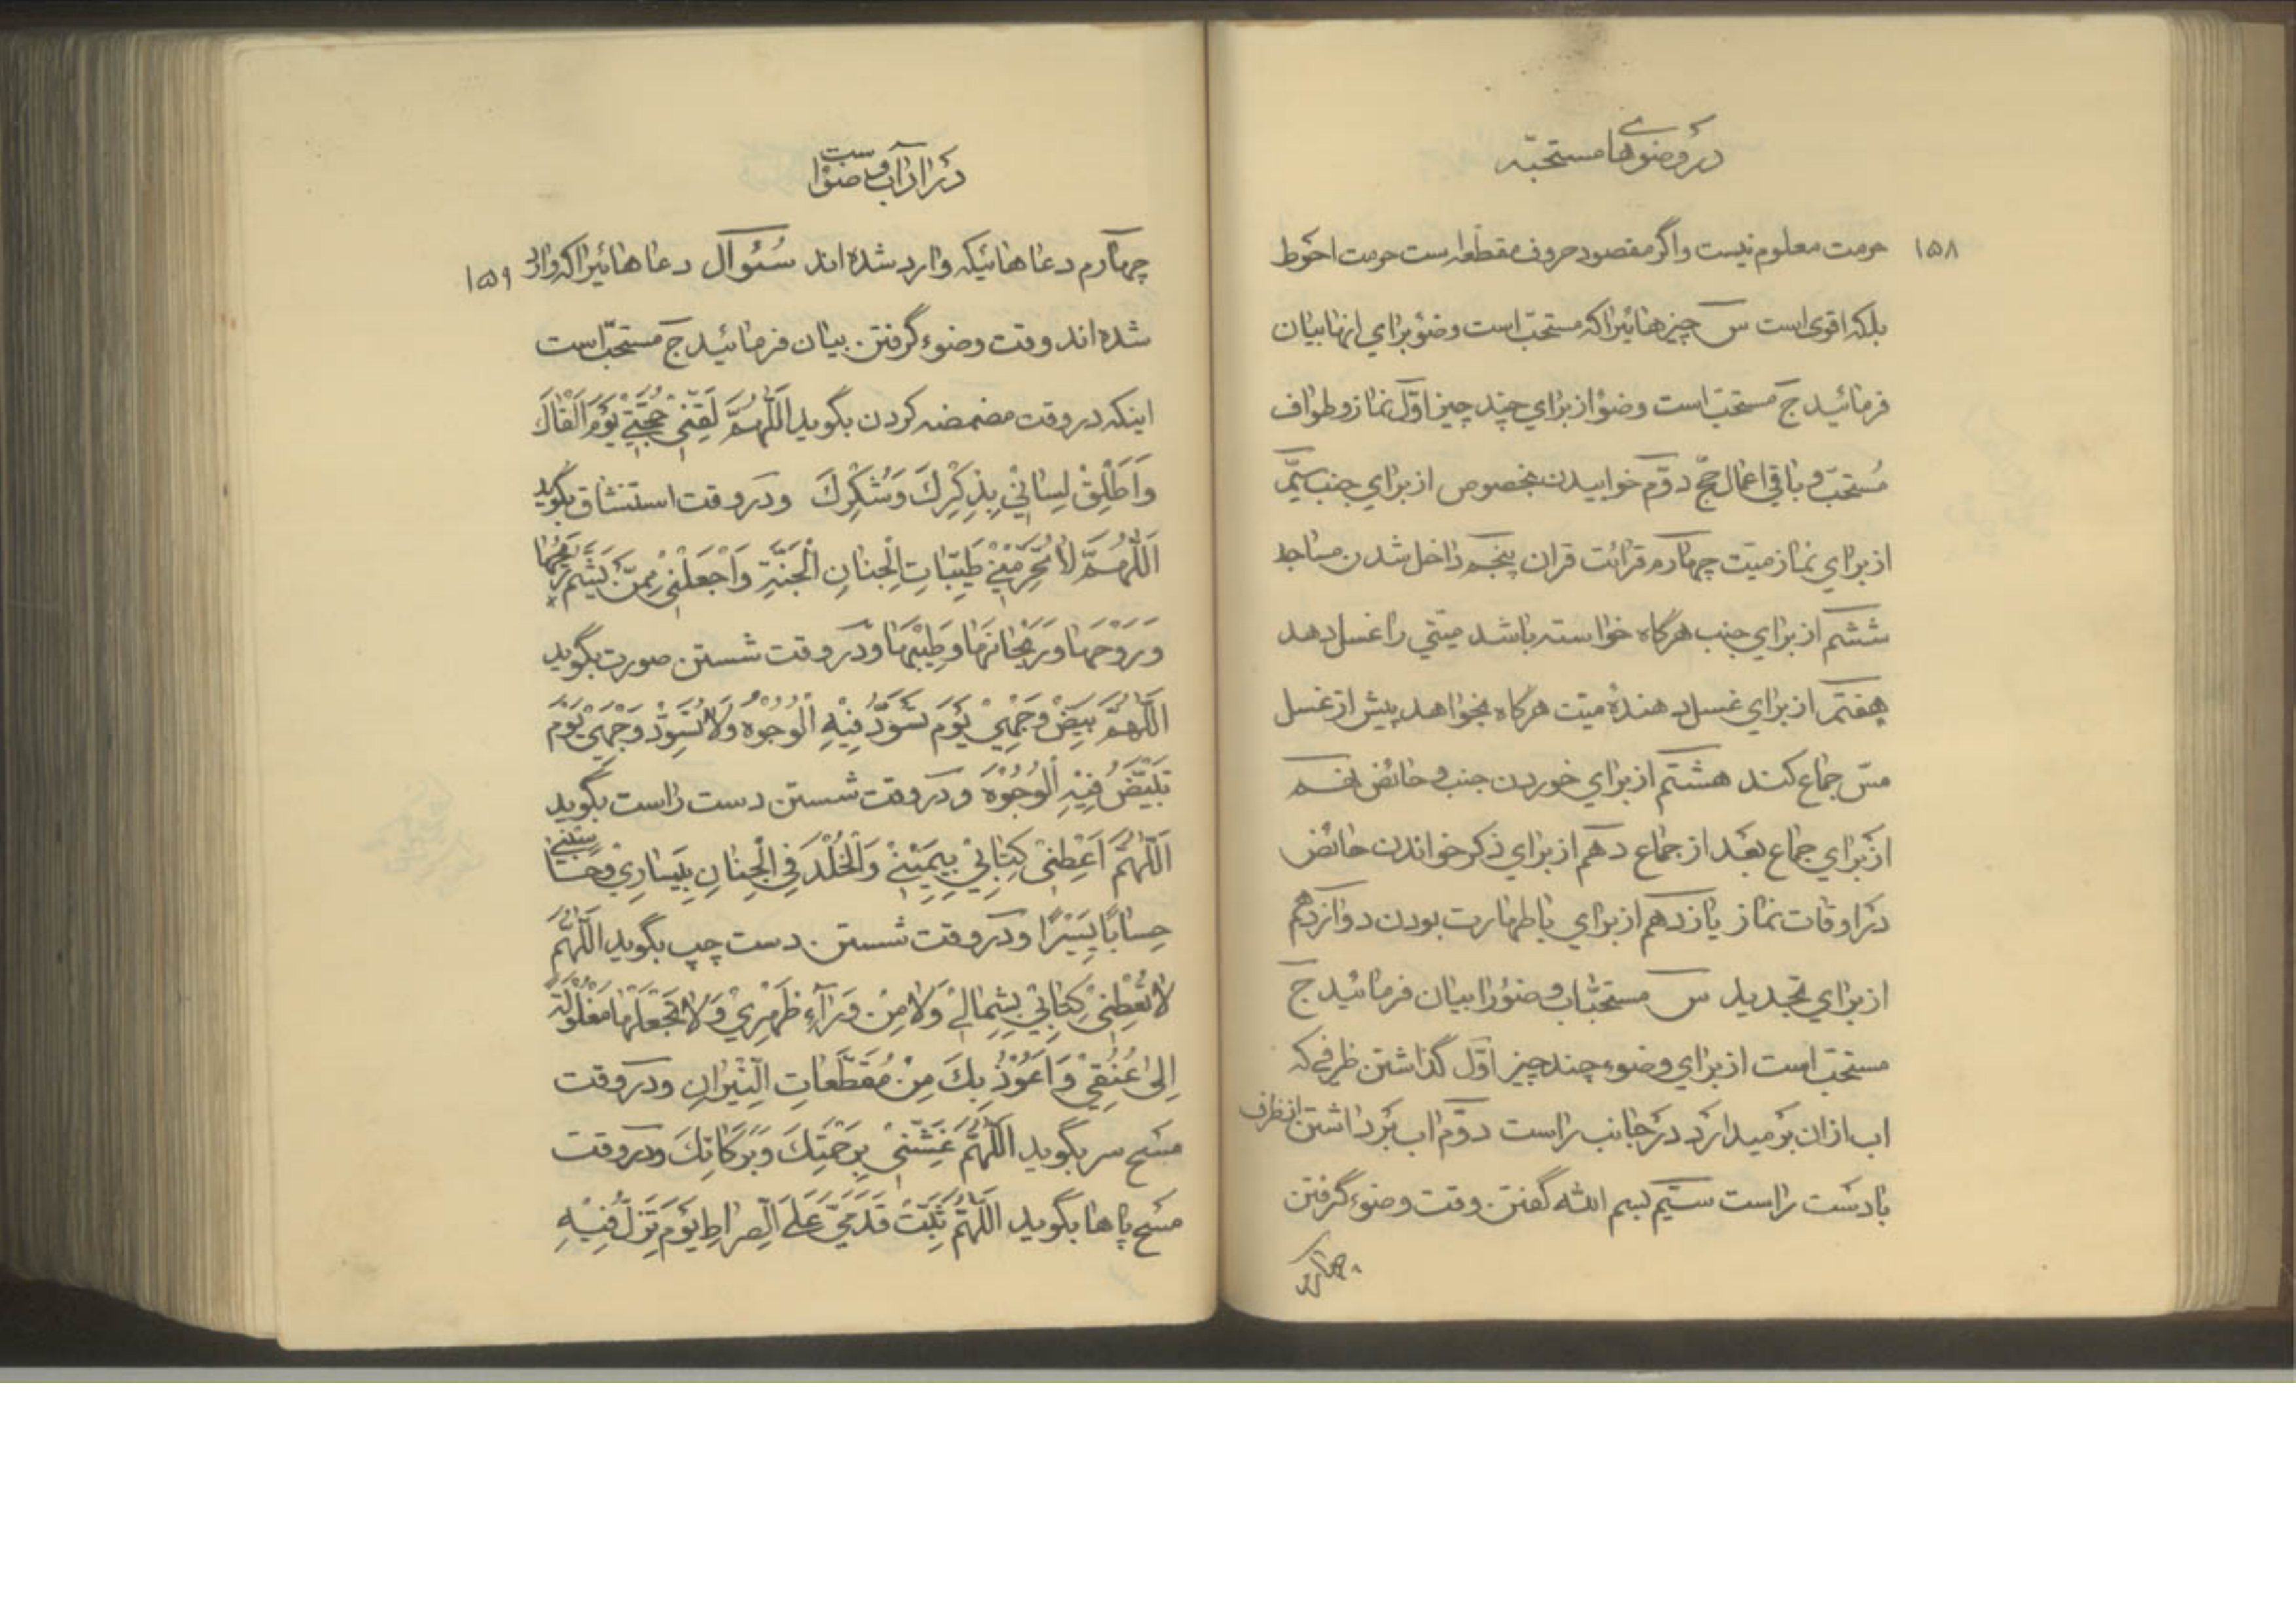 در وضوهای مستحبّه
۱۵۸
حرمت معلوم نیست و اگر مقصود حروف مقطعه است حرمت احوط
بلکه اقوی است س چیزهائیرا که مستحبّ است وضؤ برای انها بیان
فرمائید ج مستحبّ است وضؤ از برای چند چیز اوّل نماز و طواف
مُستحبّ و باقی اعمال حجّ دوّم خوابیدن بخصوص از برای جنب سیّم
از برای نماز میّت چهارم قرائت قران پنجم داخل شدن مساجد
ششم از برای جنب هرگاه خواسته باشد میّتی را غسل دهد
هفتم از برای غسل دهندهٔ میّت هرگاه بخواهد پیش از غسل
مسّ جماع کند هشتم از برای خوردن جنب و حائض نهم
از برای جماع بعد از جماع دهم از برای ذکر خواندن حائض
در اوقات نماز یازدهم از برای باطهارت بودن دوازدهم
از برای تجدید س مستحبّات وضؤ را بیان فرمائید ج
مستحبّ است از برای وضوء چند چیز اوّل گذاشتن ظرفی که
اب ازان بر میدارد در جانب راست دوّم اب برداشتن از ظرف
با دست راست سیّم بسم الله گفتن وقت وضوء گرفتن
چهارم
در اداب وضؤ است
۱۵۹
چهارم دعاهائیکه وارد شده اند سُئوال دعاهائیرا که وارد
شده اند وقت وضوء گرفتن بیان فرمائید ج مستحبّ است
اینکه در وقت مضمضه کردن بگوید اَللّٰهُمَّ لَقِّنّیٖ حُجَّتیٖ یَوْمَ اَلْقٰاكَ
وَ اَطْلِقْ لِسٰانیٖ بِذِكْرِكَ وَ شُكْرِكَ و در وقت استنشاق بگوید
اَللّٰهُمَّ لاٰ تُحَرِّمْنیٖ طَیِّبٰاتِ الْجِنٰانِ الْجَنَّةِ وَ اجْعَلْنیٖ مِمَّنْ یَشَمُّ ریٖحَهٰا
وَ رَوْحَهٰا وَ رَیْحٰانَهٰا وَ طیٖبَهٰا و در وقت شستن صورت بگوید
اَللّٰهُمَّ بَیِّضْ وَجْهیٖ یَوْمَ تَسْوَدُّ فیٖهِ الْوُجُوْهُ وَ لاٰ تُسَوِّدْ وَجْهیٖ یَوْمَ
تَبْیَضُّ فیٖهِ الْوُجُوْهُ و در وقت شستن دست راست بگوید
اَللّٰهُمَّ اَعْطِنیٖ كِتٰابیٖ بِیَمیٖنیٖ وَ الْخُلْدَ فِی الْجِنٰانِ بِیَسٰاریٖ وَ حٰاسِبْنیٖ
حِسٰابًا یَسیٖرًا و در وقت شستن دست چپ بگوید اَللّٰهُمَّ
لاٰ تُعْطِنیٖ كِتٰابیٖ بِشِمٰالیٖ وَ لاٰ مِنْ وَرٰآءِ ظَهْریٖ وَ لاٰ تَجْعَلْهٰا مَغْلُوْلَةً
اِلیٰ عُنُقیٖ وَ اَعُوْذُ بِكَ مِنْ مُقَطَّعٰاتِ النّیٖرٰانِ و در وقت
مسح سر بگوید اَللّٰهُمَّ غَشِّنیٖ بِرَحْمَتِكَ وَ بَرَكٰاتِكَ و در وقت
مسح پاها بگوید اَللّٰهُمَّ ثَبِّتْ قَدَمَیَّ عَلَی الصِّرٰاطِ یَوْمَ تَزِلُّ فیٖهِ